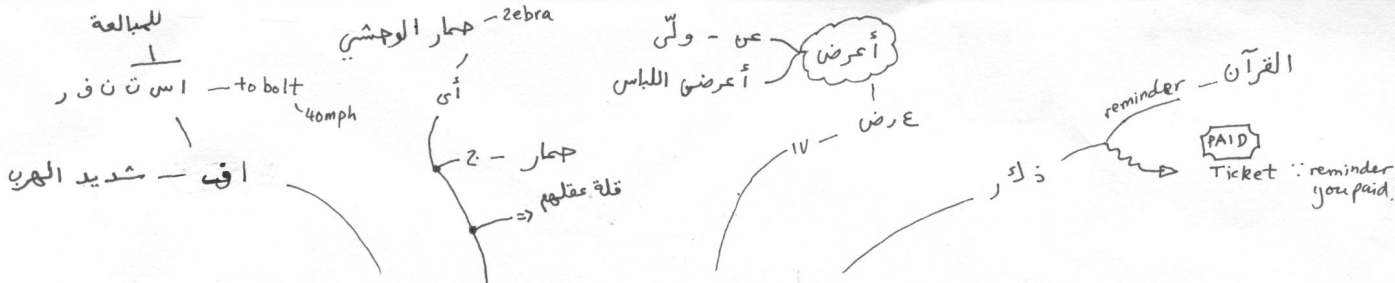 للمبالغة
ا
ا س ت ن ف ر – to bolt
40mph
اف – شديد الهرب
حمار الوحشي – zebra
أي
حمار – ج
=> قلة عقلهم
أعرض
عن – ولّى
أعرض اللباس
ع ر ض – ١٧
ذ ك ر
reminder – القرآن
PAID
Ticket ∵ reminder
you paid.